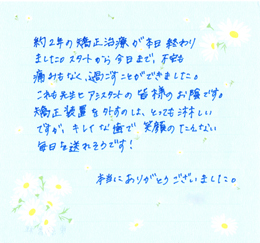 約2年の矯正治療が本日終わり
ました。スタートから今日まで、不安も
痛みもなく、過ごすことができました。
これも先生とアシスタントの皆様のお陰です。
矯正装置を外すのは、とっても淋しい
ですが、キレイな歯で笑顔のたえない
毎日を送れそうです!
本当にありがとうございました。